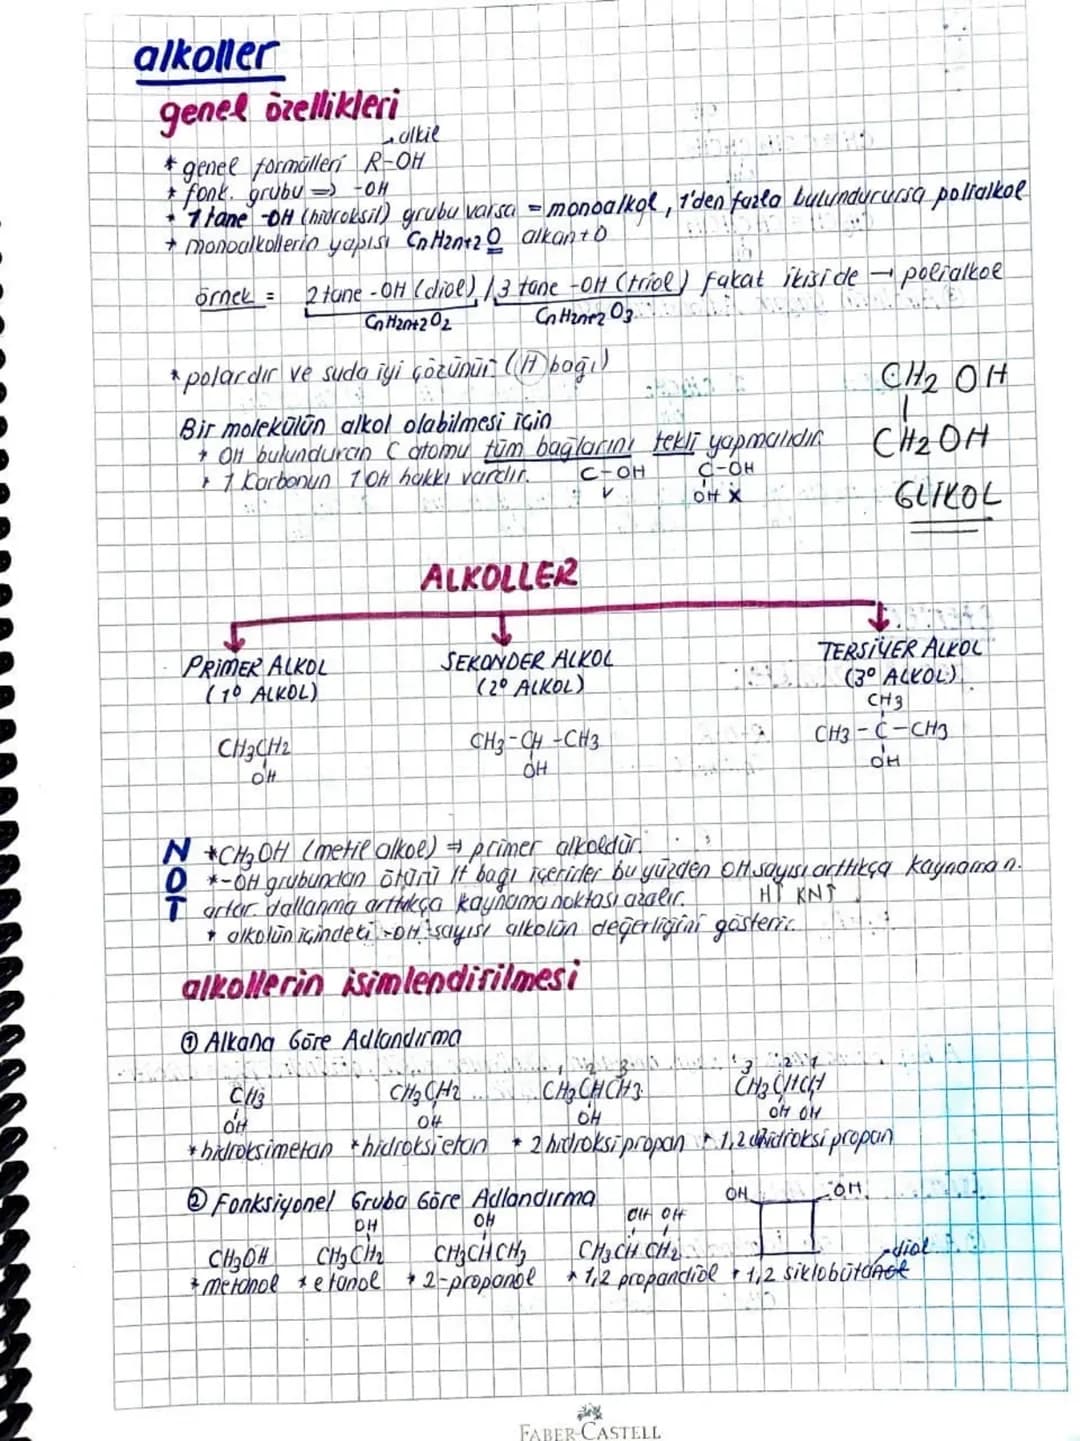 alkoller
genel özellikleri
alkil
* genel formülleri R-OH
* fonk. grubu => -OH
* 1 tane -OH (hidroksil) grubu varsa = monoalkol, 1'den fazla bulundurursa polialkol
* monoalkollerin yapısı CnH2n+2O alkan+O
örnek = 2 tane -OH (diol) / 3 tane -OH (triol) fakat ikisi de → polialkol
CnH2n+2O2 CnH2n+2O3
* polardır ve suda iyi çözünür. (H bağı)
Bir molekülün alkol olabilmesi için
* OH bulunduran C atomu tüm bağlarını tekli yapmalıdır.
* 1 Karbonun 1 OH hakkı vardır. C-OH C-OH
✓ OH X
CH2 OH
CH2 OH
GLİKOL
ALKOLLER
PRİMER ALKOL SEKONDER ALKOL TERSİYER ALKOL
(1º ALKOL) (2º ALKOL) (3º ALKOL)
CH3
CH3CH2 CH3-CH-CH3 CH3-C-CH3
OH OH OH
NOT
*CH3OH (metil alkol) ⇒ primer alkoldür.
*-OH grubundan ötürü H bağı içerirler bu yüzden OH sayısı arttıkça kaynama n.
artar. dallanma arttıkça kaynama noktası azalır. H↑ KN↑
* alkolün içindeki -OH sayısı alkolün değerliğini gösterir.
alkollerin isimlendirilmesi
① Alkana Göre Adlandırma
1 2 3 3 2 1
CH3 CH3CH2 CH3CHCH3 CH3CHCH
OH OH OH OH OH
* hidroksimetan * hidroksietan * 2 hidroksipropan * 1,2 dihidroksi propan
② Fonksiyonel Gruba Göre Adlandırma OH OH
OH OH OH OH
CH3OH CH3CH2 CH3CHCH3 CH3CHCH2
diol
* metanol * etanol * 2-propanol * 1,2 propandiol * 1,2 siklobütanol
FABER-CASTELL